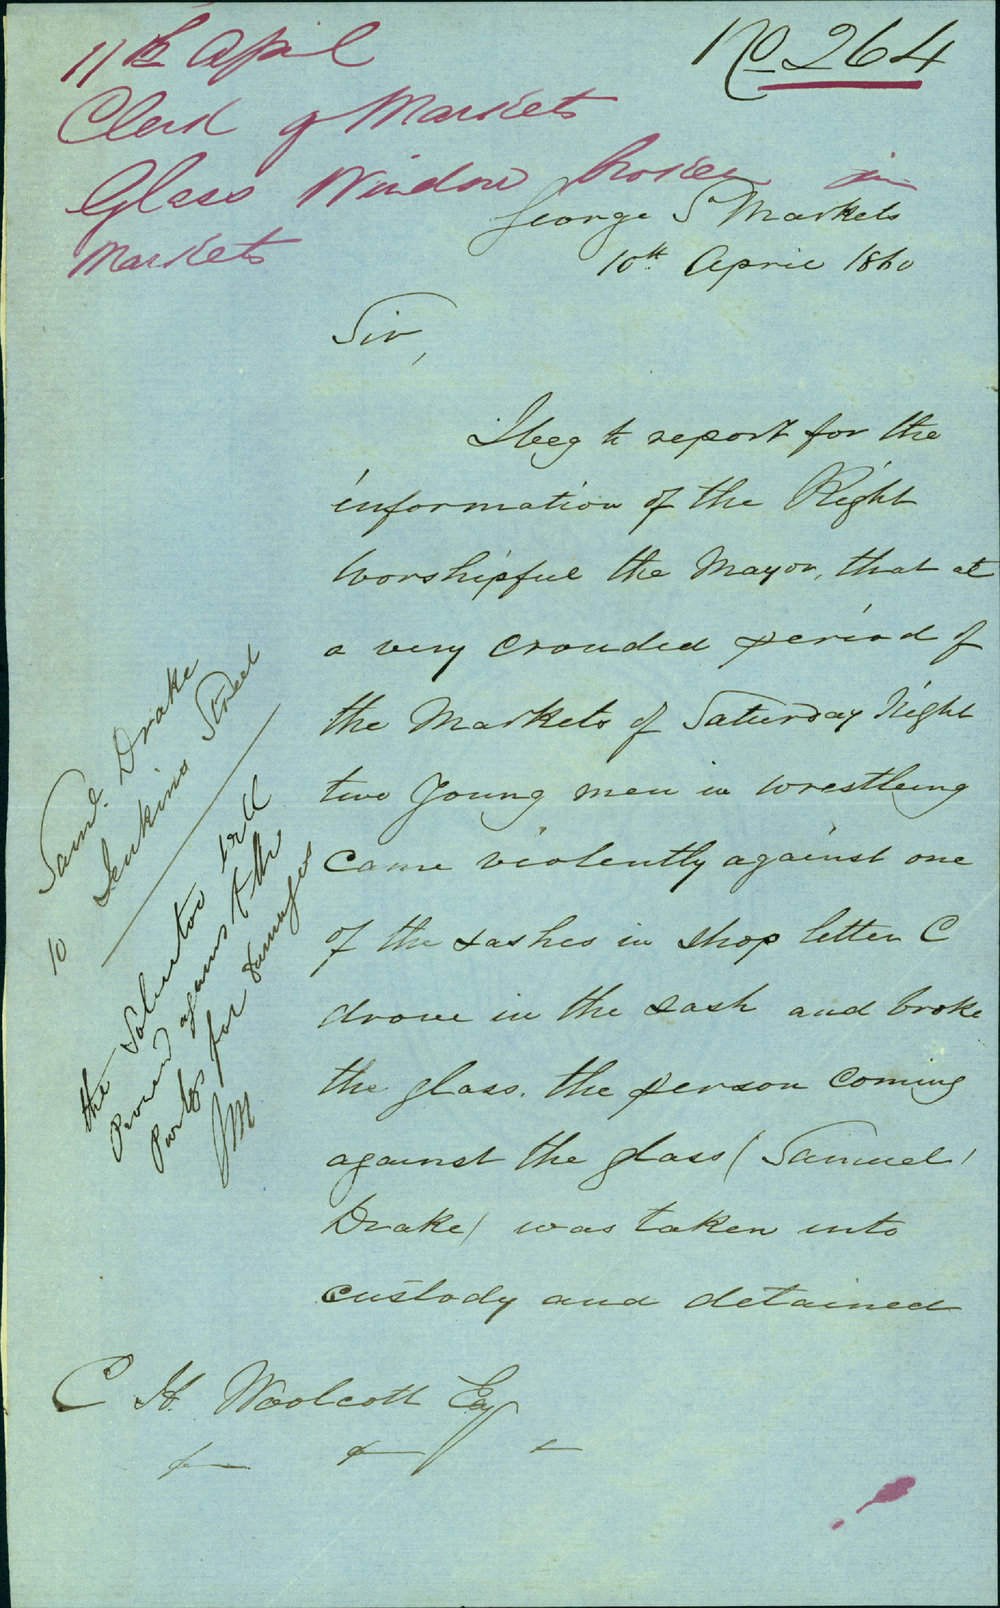 11th April
Clerk of Markets
Glass Window broken in
Markets
No 264
George St Markets
10th April 1860
Sir,
I beg to report for the
information of the Right
Worshipful the Mayor, that at
a very crouded period of
the Markets of Saturday Night
two Young men in wrestleing
came violently against one
of the sashes in shop letter C
drove in the sash and broke
the glass. the person coming
against the glass (Samuel
Drake) was taken into
custody and detained
C H. Woolcott Esq
Saml. Drake
10 Jenkins Street
the Solicitor will
proceed against the
for damages
JM